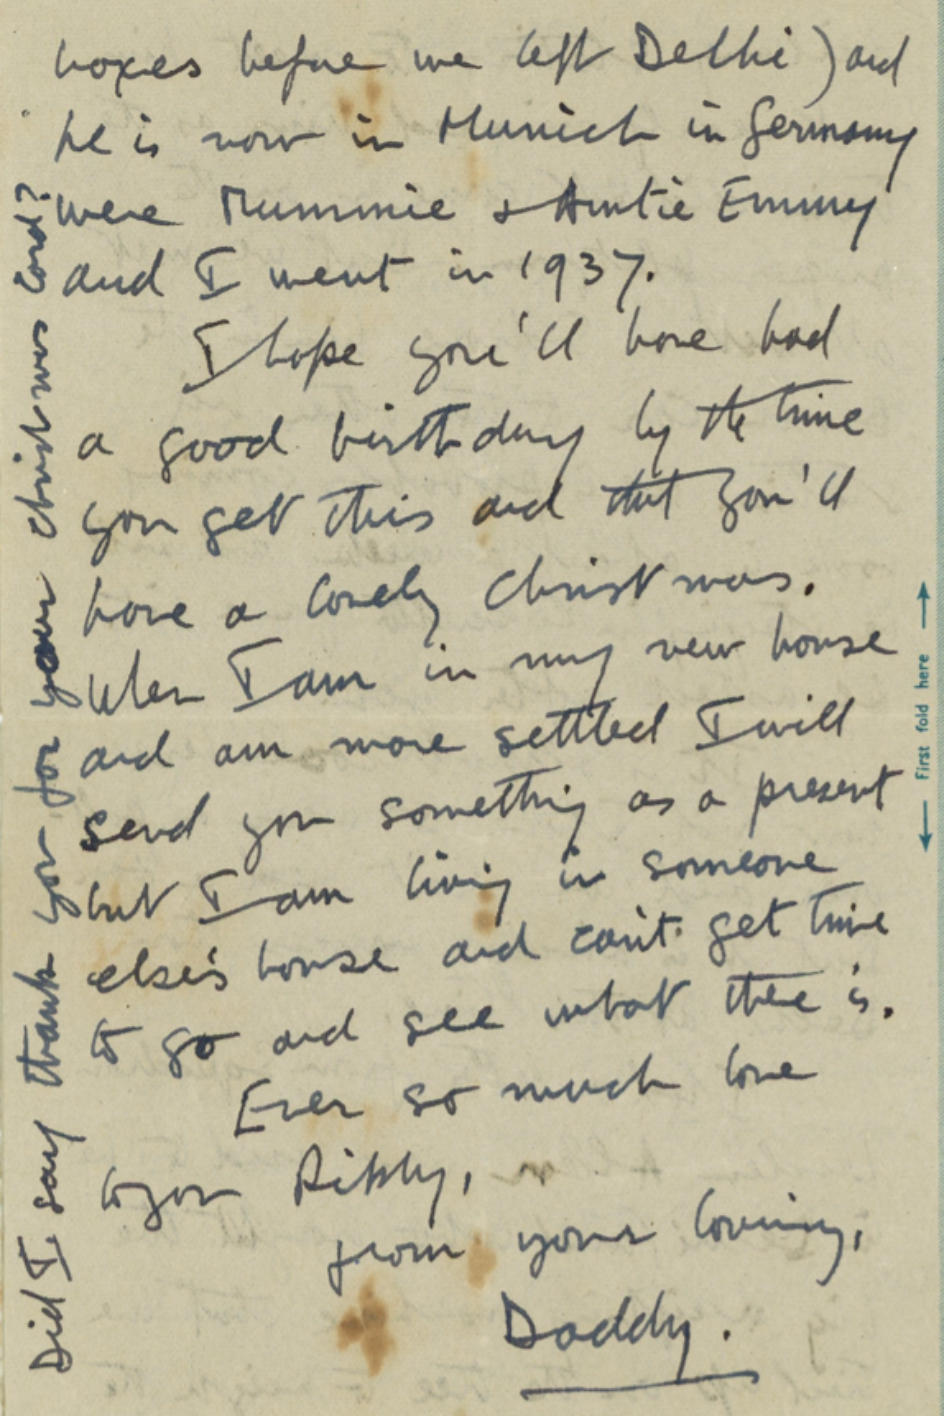 boxes before we left Delhi) and
he is now in Munich in Germany
were Mummie & Auntie Emmy
and I went in 1937.
I hope you'll have had
a good birthday by the time
you get this and that you'll
have a lovely Christmas.
When I am in my new house
and am more settled I will
send you something as a present
but I am living in someone
else's house and can't get time
to go and see what there is.
Ever so much love
to you
from your loving,
Daddy.
Did I say thank you for your Christmas card?
First fold here